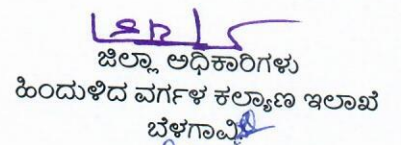 ಜಿಲ್ಲಾ ಅಧಿಕಾರಿಗಳು
ಹಿಂದುಳಿದ ವರ್ಗಗಳ ಕಲ್ಯಾಣ ಇಲಾಖೆ
ಬೆಳಗಾವಿ